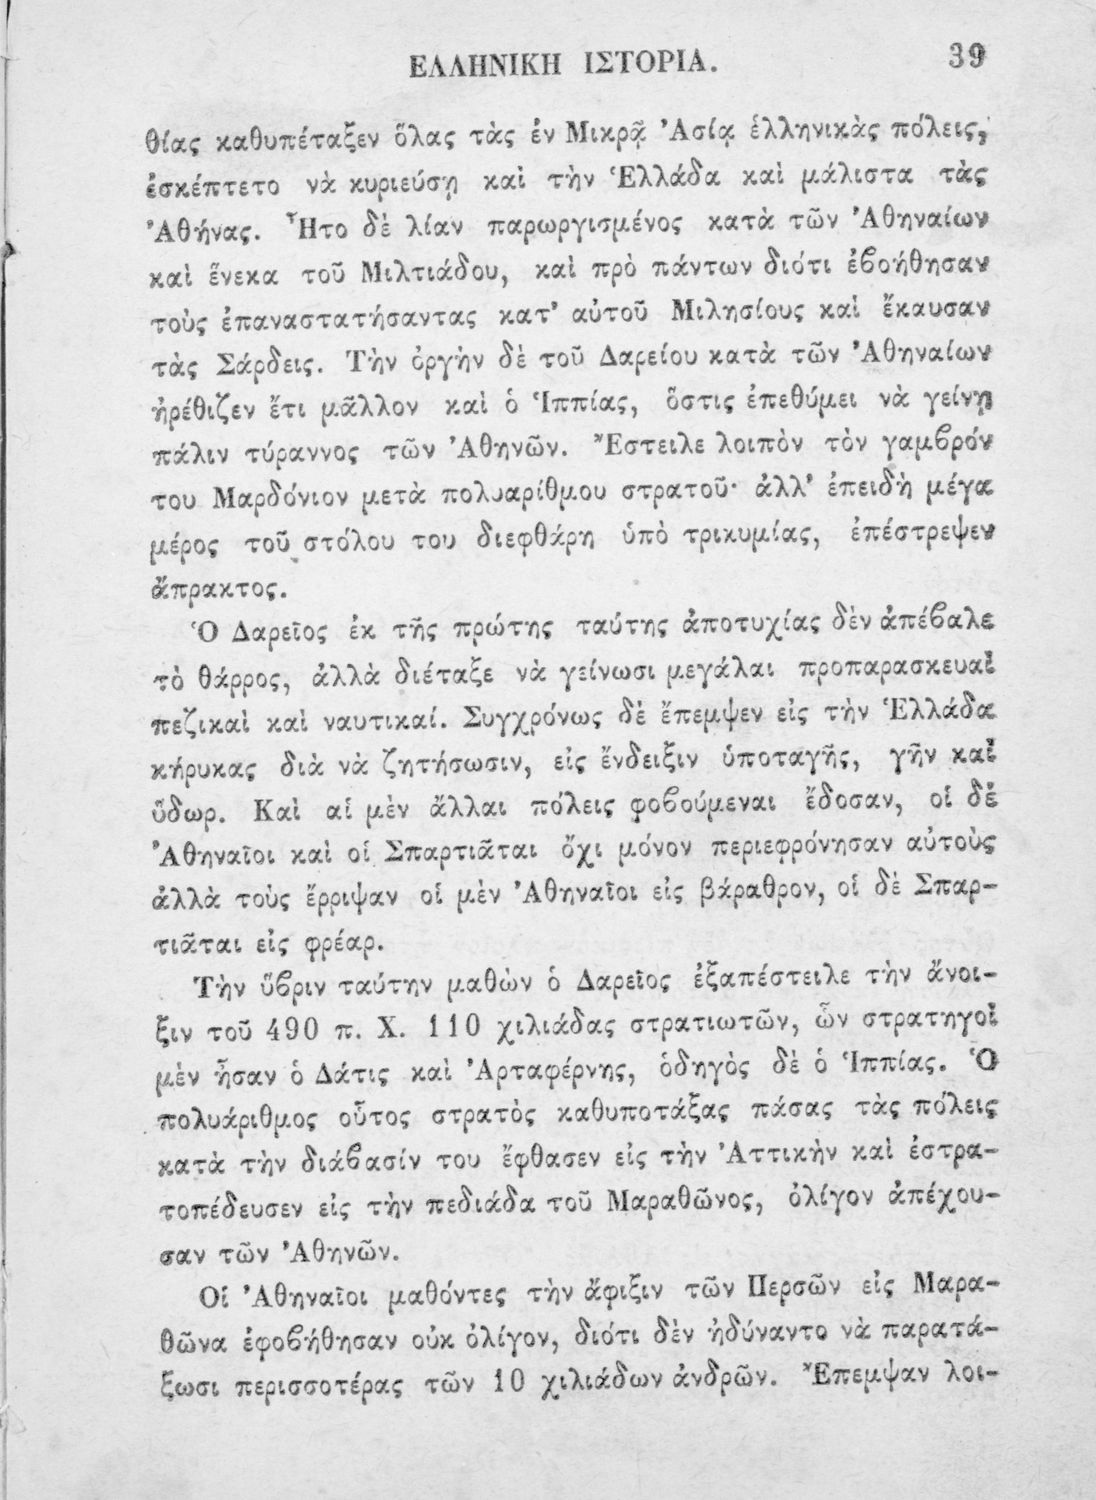 ΕΛΛΗΝΙΚΗ ΙΣΤΟΡΙΑ. 39
θίας καθυπέταξεν ὅλας τὰς ἐν Μικρᾷ Ἀσίᾳ ἑλληνικὰς πόλεις,
ἐσκέπτετο νὰ κυριεύσῃ καὶ τὴν Ἑλλάδα καὶ μάλιστα τὰς
Ἀθήνας. Ἦτο δὲ λίαν παρωργισμένος κατὰ τῶν Ἀθηναίων
καὶ ἕνεκα τοῦ Μιλτιάδου, καὶ πρὸ πάντων διότι ἐβοήθησαν
τοὺς ἐπαναστατήσαντας κατ’ αὐτοῦ Μιλησίους καὶ ἔκαυσαν
τὰς Σάρδεις. Τὴν ὀργὴν δὲ τοῦ Δαρείου κατὰ τῶν Ἀθηναίων
ἠρέθιζεν ἔτι μᾶλλον καὶ ὁ Ἱππίας, ὅστις ἐπεθύμει νὰ γείνῃ
πάλιν τύραννος τῶν Ἀθηνῶν. Ἔστειλε λοιπὸν τὸν γαμβρόν
του Μαρδόνιον μετὰ πολυαρίθμου στρατοῦ· ἀλλ’ ἐπειδὴ μέγα
μέρος τοῦ στόλου του διεφθάρη ὑπὸ τρικυμίας, ἐπέστρεψεν
ἄπρακτος.
Ὁ Δαρεῖος ἐκ τῆς πρώτης ταύτης ἀποτυχίας δὲν ἀπέβαλε
τὸ θάρρος, ἀλλὰ διέταξε νὰ γείνωσι μεγάλαι προπαρασκευαὶ
πεζικαὶ καὶ ναυτικαί. Συγχρόνως δὲ ἔπεμψεν εἰς τὴν Ἑλλάδα
κήρυκας διὰ νὰ ζητήσωσιν, εἰς ἔνδειξιν ὑποταγῆς, γῆν καὶ
ὕδωρ. Καὶ αἱ μὲν ἄλλαι πόλεις φοβούμεναι ἔδοσαν, οἱ δὲ
Ἀθηναῖοι καὶ οἱ Σπαρτιᾶται ὄχι μόνον περιεφρόνησαν αὐτοὺς
ἀλλὰ τοὺς ἔρριψαν οἱ μὲν Ἀθηναῖοι εἰς βάραθρον, οἱ δὲ Σπαρ-
τιᾶται εἰς φρέαρ.
Τὴν ὕβριν ταύτην μαθὼν ὁ Δαρεῖος ἐξαπέστειλε τὴν ἄνοι-
ξιν τοῦ 490 π. Χ. 110 χιλιάδας στρατιωτῶν, ὧν στρατηγοὶ
μὲν ἦσαν ὁ Δάτις καὶ Ἀρταφέρνης, ὁδηγὸς δὲ ὁ Ἱππίας. Ὁ
πολυάριθμος οὗτος στρατὸς καθυποτάξας πάσας τὰς πόλεις
κατὰ τὴν διάβασίν του ἔφθασεν εἰς τὴν Ἀττικὴν καὶ ἐστρα-
τοπέδευσεν εἰς τὴν πεδιάδα τοῦ Μαραθῶνος, ὀλίγον ἀπέχου-
σαν τῶν Ἀθηνῶν.
Οἱ Ἀθηναῖοι μαθόντες τὴν ἄφιξιν τῶν Περσῶν εἰς Μαρα-
θῶνα ἐφοβήθησαν οὐκ ὀλίγον, διότι δὲν ἠδύναντο νὰ παρατά-
ξωσι περισσοτέρας τῶν 10 χιλιάδων ἀνδρῶν. Ἔπεμψαν λοι-